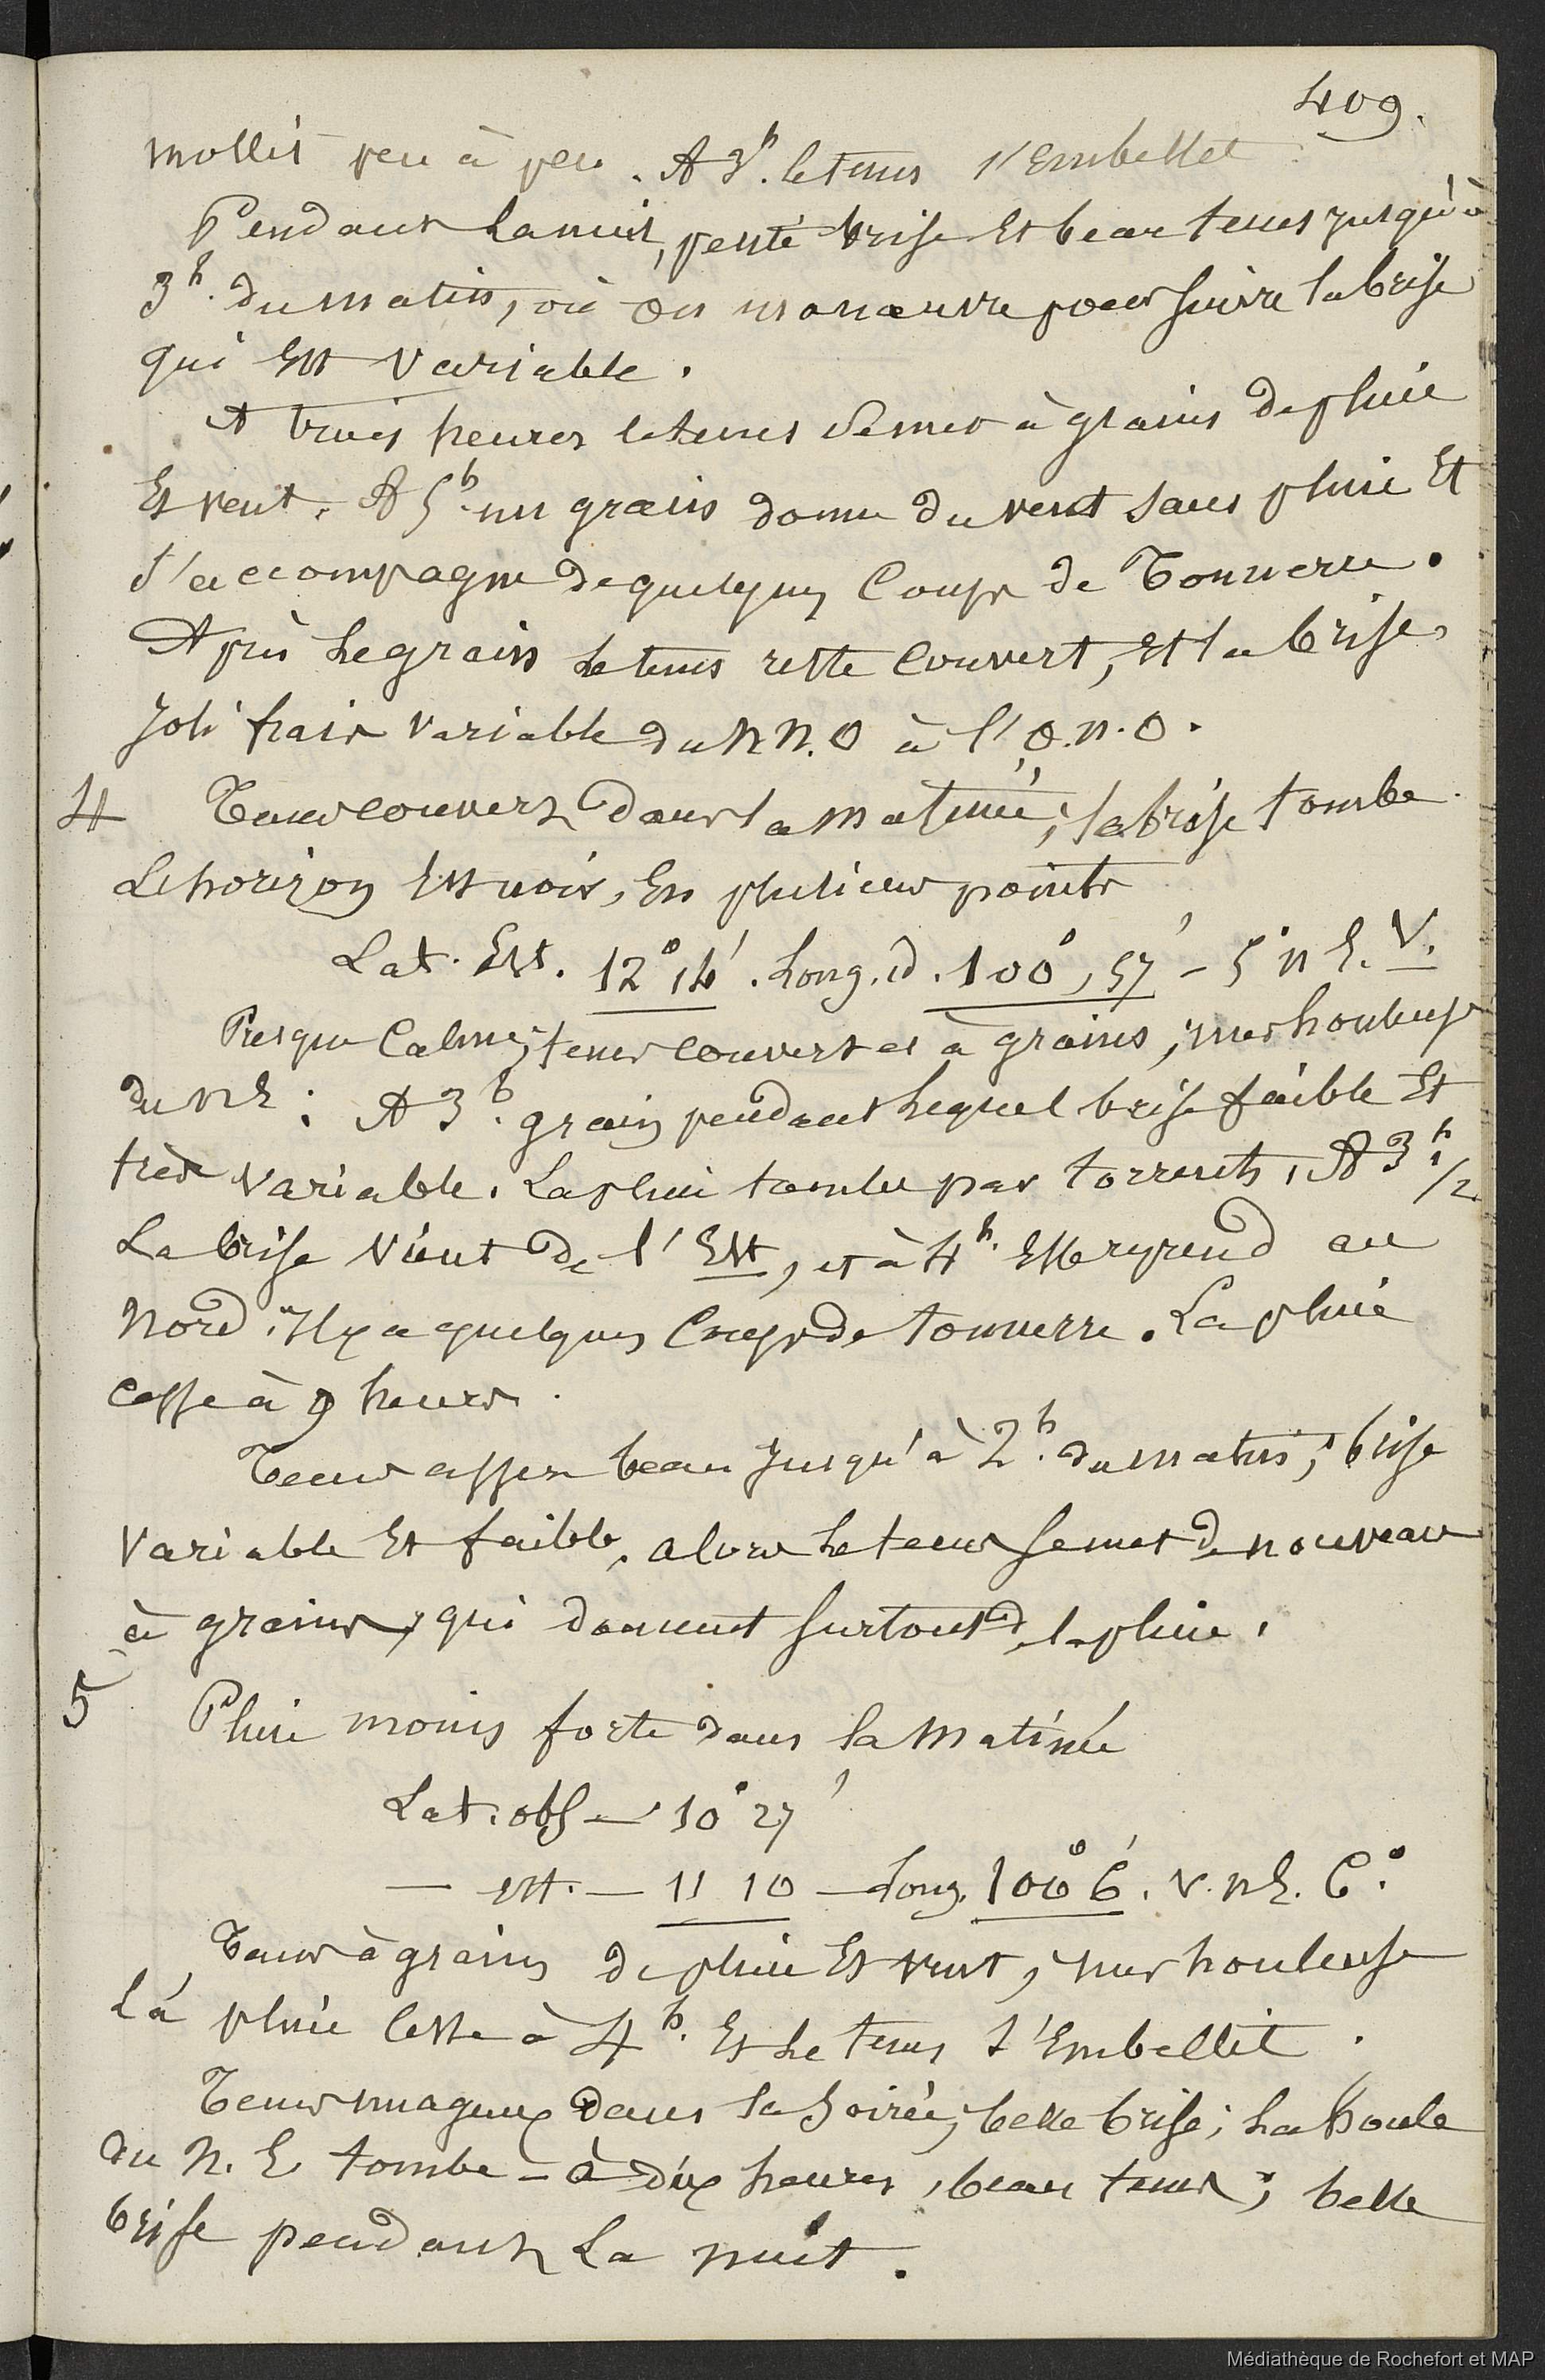 409.
mollit peu à peu. A 3h. le tems s'Embellet
Pendant La nuit, petite brise Et beau tems jusqu'à
3h. du matin, où on manœuvre pour suivre la brise
qui Est variable.
A trois heures le tems se met à grains de pluie
Et vent. A 5h. un grain donne du vent sans pluie Et
s'accompagne de quelques Coups de Tonnerre.
Après Le grain Le tems reste Couvert, Et la brise
Joli frais variable du N N.O à l'O.N.O.
4 Tems couvert dans la matinée; la brise tombe
L'horizon Est noir, En plusieurs points
Lat. Est. 12° 14'. Long. id. 100°, 57' - 5° N E. V.
Presque Calme; tems couvert et à grains; mer houleuse
du NE: A 3h. grain pendant Lequel brise faible Et
très variable. La pluie tombe par torrents. A 3h. 1/2
La brise vient de l'Est, et à 4h. Elle reprend au
Nord. Il y a quelques Coups de tonnerre. La pluie
Cesse à 9 heures.
Tems assez beau Jusqu'à 2h. du matin; brise
variable Et faible, alors Le tems se met de nouveau
à grains, qui donnent surtout de la pluie.
5 Pluie moins forte dans la Matinée
Lat. obs — 10° 27'
— est. — 11 10 — Long. 100° 6'. V. N E. 6°.
Tems à grains de pluie Et vent, mer houleuse
La pluie Cesse à 4h. Et Le tems s'Embellit.
Tems nuageux dans la Soirée; belle brise; La houle
du N. E tombe - à dix heures, beau tems; belle
brise pendant La nuit.
Médiathèque de Rochefort et MAP